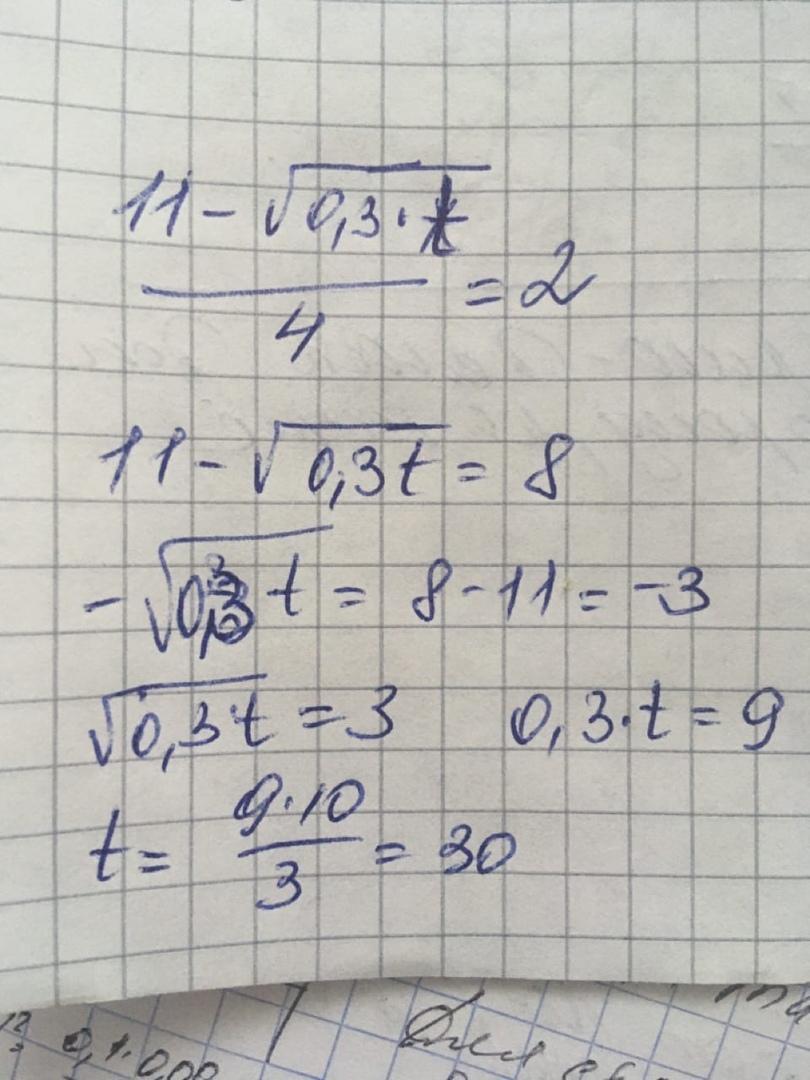 11 - √0,3·t
4
= 2
11 - √0,3t = 8
- √0,3 t = 8 - 11 = -3
√0,3t = 3 0,3·t = 9
t = 9·10
3
= 30
0,1·0,00
Для